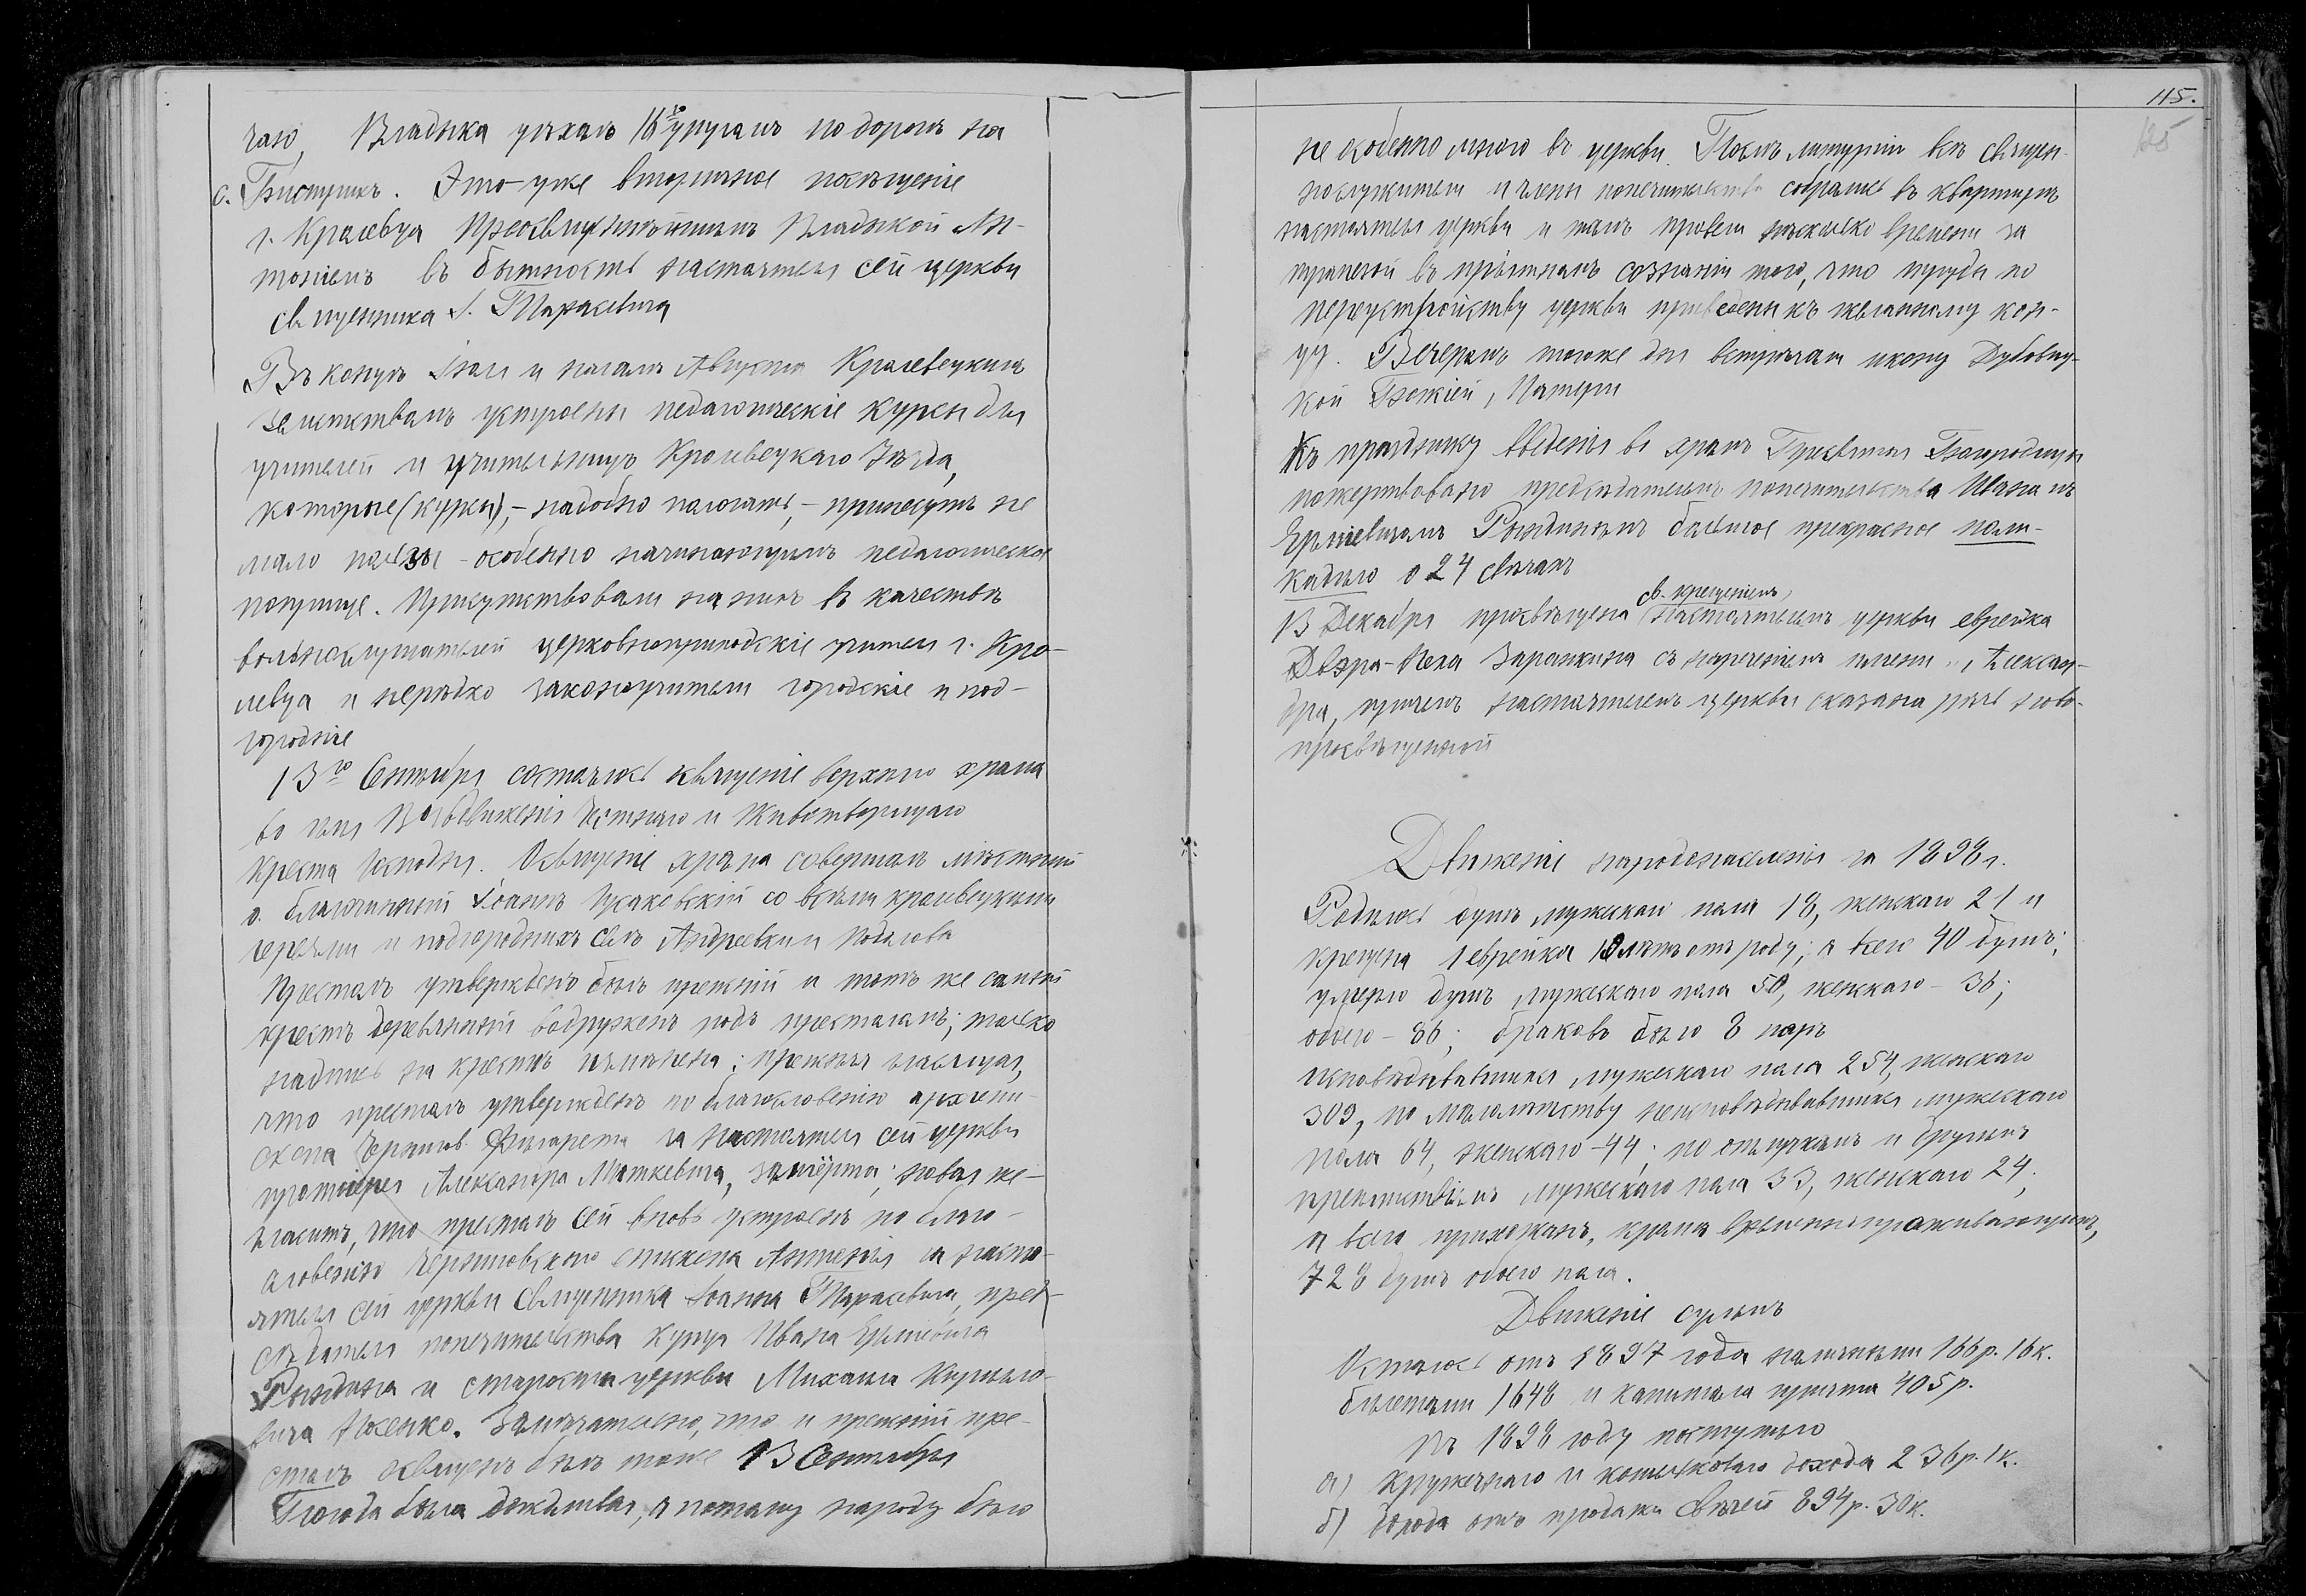 чаю, Владыка уѣхалъ 16го утромъ по дорогѣ на
с. Бистрикъ. Это уже вторичное посѣщеніе
г. Кролевца Преосвященнѣйшимъ Владыкой Ан-
тоніемъ въ бытность настоятеля сей церкви
священника І. Тарасевича
Въ концѣ Іюля и началѣ Августа Кролевецкимъ
земствомъ устроены педагогическіе курсы для
учителей и учительницъ Кролевецкаго Уѣзда,
которые (курсы), – надобно полагать, – принесутъ не
мало пользы – особенно начинающимъ педагогическое
поприще. Присутствовали на нихъ въ качествѣ
вольнослушателей церковноприходскіе учителя г. Кро-
левца и нерѣдко законоучители городскіе и под-
городніе
13го Сентября состоялось освященіе верхняго храма
во имя Воздвиженія Честнаго и Животворящаго
Креста Господня. Освященіе храма совершалъ мѣстный
о. благочинный Іоаннъ со всѣми кролевецкими
іереями и подгородныхъ селъ Андреевки и Подолова
Престолъ утвержденъ былъ прежній и тотъ же самый
крестъ деревянный водруженъ подъ престоломъ; только
надпись на крестѣ измѣнена: прежняя гласящая,
что престолъ утвержденъ по благословенію архіепи-
скопа Чернигов. Филарета за настоятеля сей церкви
протоіерея Александра Маткевича, затёрта; новая же –
гласитъ, что престолъ сей вновь устроенъ по благо-
словенію Черниговскаго епископа Антонія за насто-
ятеля сей церкви Священника Іоанна Тарасевича, пред-
сѣдателя попечительства купца Ивана Ерміевича
Рындина и старосты церкви Михаила Кирилло-
вича Замѣчательно, что и прежній пре-
столъ освященъ былъ тоже 13 Сентября
Погода была дождливая, а потому народу было
115.
125
не особенно много въ церкви. Послѣ литургіи всѣ священ-
нослужители и члены попечительства собрались въ квартиру
настоятеля церкви и тамъ провели нѣсколько времени за
трапезой въ пріятномъ сознаніи того, что труды по
переустройству церкви приведены къ желанному кон-
цу. Вечеромъ того же дня встрѣчали икону Дубовиц-
кой Божіей, Матери
Къ празднику Введенія во храмъ Пресвятыя Богородицы
пожертвовано предсѣдателемъ попечительства Иваномъ
Ерміевичемъ Рындинымъ большое прекрасное пани-
кадило о 24 свѣчахъ
св. крещеніемъ,
13 Декабря просвѣщена настоятелемъ церкви еврейка
Двэра-Неха Заранкина съ нареченіемъ имени „Алексан-
дра, причемъ настоятелемъ церкви сказана рѣчь ново-
просвѣщенной
Движеніе народонаселенія за 1898 г.
Родилось душъ мужескаго пола 18, женскаго 21 и
крещена 1 еврейка лѣтъ отъ роду; а всего 40 душъ;
умерло душъ мужескаго пола 50, женскаго – 36;
обоего – 86; браковъ было 8 паръ
исповѣдывавшихся мужескаго пола 254, женскаго
309, по малолѣтству неисповѣдывавшихся мужескаго
пола 64, женскаго – 44; по отлучкамъ и другимъ
препятствіямъ мужескаго пола 33, женскаго 24;
а всего прихожанъ, кромѣ временно проживающихъ,
728 душъ обоего пола.
Движеніе суммъ
Осталось отъ 1897 года наличными 166 р. 16 к.
билетами 1648 и капитала причта 405 р.
Въ 1898 году поступило
а) Кружечнаго и кошельковаго дохода 236 р. 1 к.
б) дохода отъ продажи Свѣчей 894 р. 30 к.